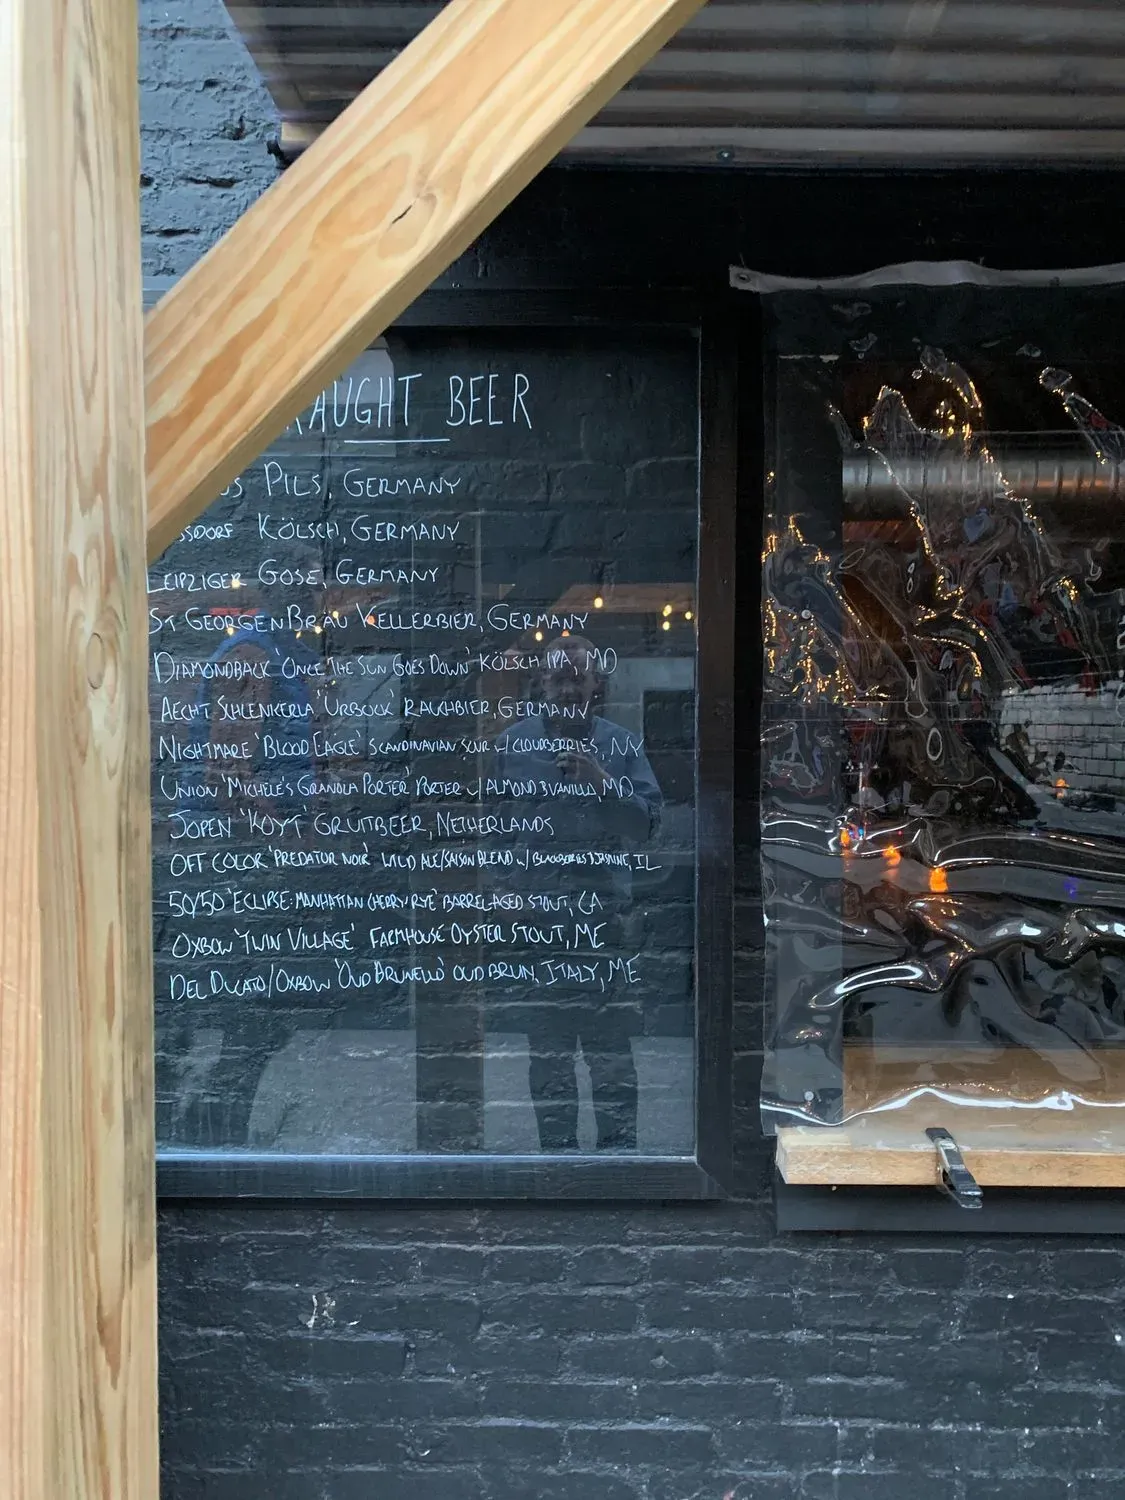 AUGHT BEER
PILS, GERMANY
SSDORF KÖLSCH, GERMANY
LEIPZIGER GOSE, GERMANY
ST GEORGEN BRÄU KELLERBIER, GERMANY
DIAMONDBACK 'ONCE THE SUN GOES DOWN' KÖLSCH IPA, MD
AECHT SCHLENKERLA 'URBOCK' RAUCHBIER, GERMANY
NIGHTMARE 'BLOOD EAGLE' SCANDINAVIAN SOUR w/ CLOUDBERRIES, NY
UNION 'MICHELE'S GRANOLA PORTER' PORTER w/ ALMOND & VANILLA, MD
JOPEN 'KOYT' GRUITBEER, NETHERLANDS
OFF COLOR 'PREDATOR NOIR' WILD ALE/SAISON BLEND w/ BLACKBERRIES & JASMINE, IL
50/50 'ECLIPSE: MANHATTAN CHERRY RYE' BARREL-AGED STOUT, CA
OXBOW 'TWIN VILLAGE' FARMHOUSE OYSTER STOUT, ME
DEL DUCATO/OXBOW 'OUD BRUNELLO' OUD BRUIN, ITALY, ME